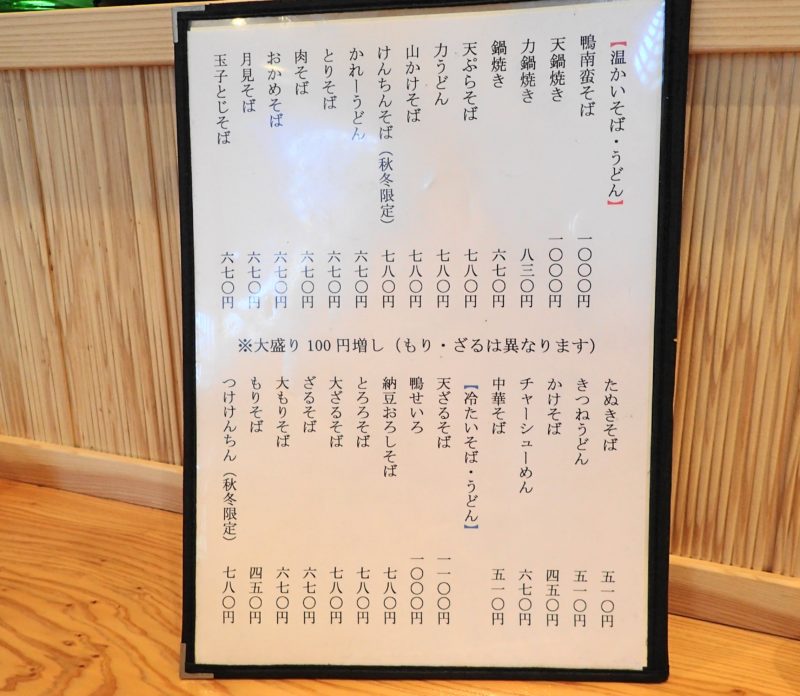 【温かいそば・うどん】
鴨南蛮そば 一〇〇〇円
天鍋焼き 一〇〇〇円
力鍋焼き 八三〇円
鍋焼き 六七〇円
天ぷらそば 七八〇円
力うどん 七八〇円
山かけそば 七八〇円
けんちんそば（秋冬限定） 七八〇円
かれーうどん 六七〇円
とりそば 六七〇円
肉そば 六七〇円
おかめそば 六七〇円
月見そば 六七〇円
玉子とじそば 六七〇円
※大盛り100円増し（もり・ざるは異なります）
たぬきそば 五一〇円
きつねうどん 五一〇円
かけそば 四五〇円
チャーシューめん 六七〇円
中華そば 五一〇円
【冷たいそば・うどん】
天ざるそば 一一〇〇円
鴨せいろ 一〇〇〇円
納豆おろしそば 七八〇円
とろろそば 七八〇円
大ざるそば 七八〇円
ざるそば 六七〇円
大もりそば 六七〇円
もりそば 四五〇円
つけけんちん（秋冬限定） 七八〇円